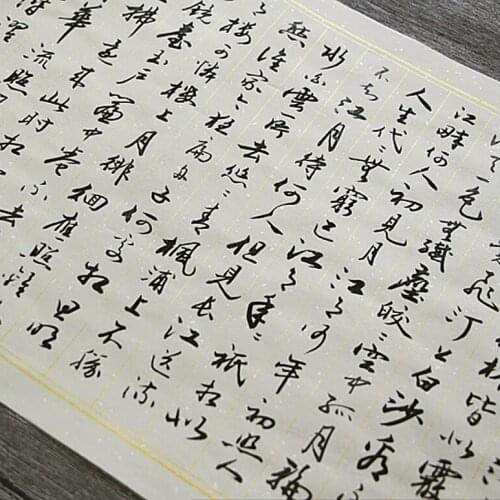 皆似霰
飛汀上白沙看不
一色無纖塵皎皎空中孤月輪
江畔何人初見月江月何年初照人
人生代代無窮已江月年年祇相似
不知江月待何人但見長江送流
水白雲一片去悠悠青楓浦上不勝
愁誰家今夜扁舟子何處相思明
月樓可憐樓上月徘徊應照離
鏡臺玉戶簾中卷不去
拂還來此時相
華流照
躍